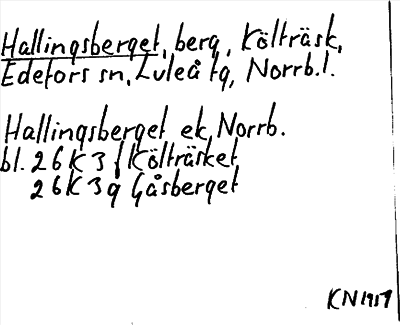 Hallingsberget, berg, Költräsk,
Edefors sn, Luleå tg, Norrb.l.
Hallingsberget ek, Norrb.
bl. 26K3f Költräsket
26K3g Gåsberget
KN 1957